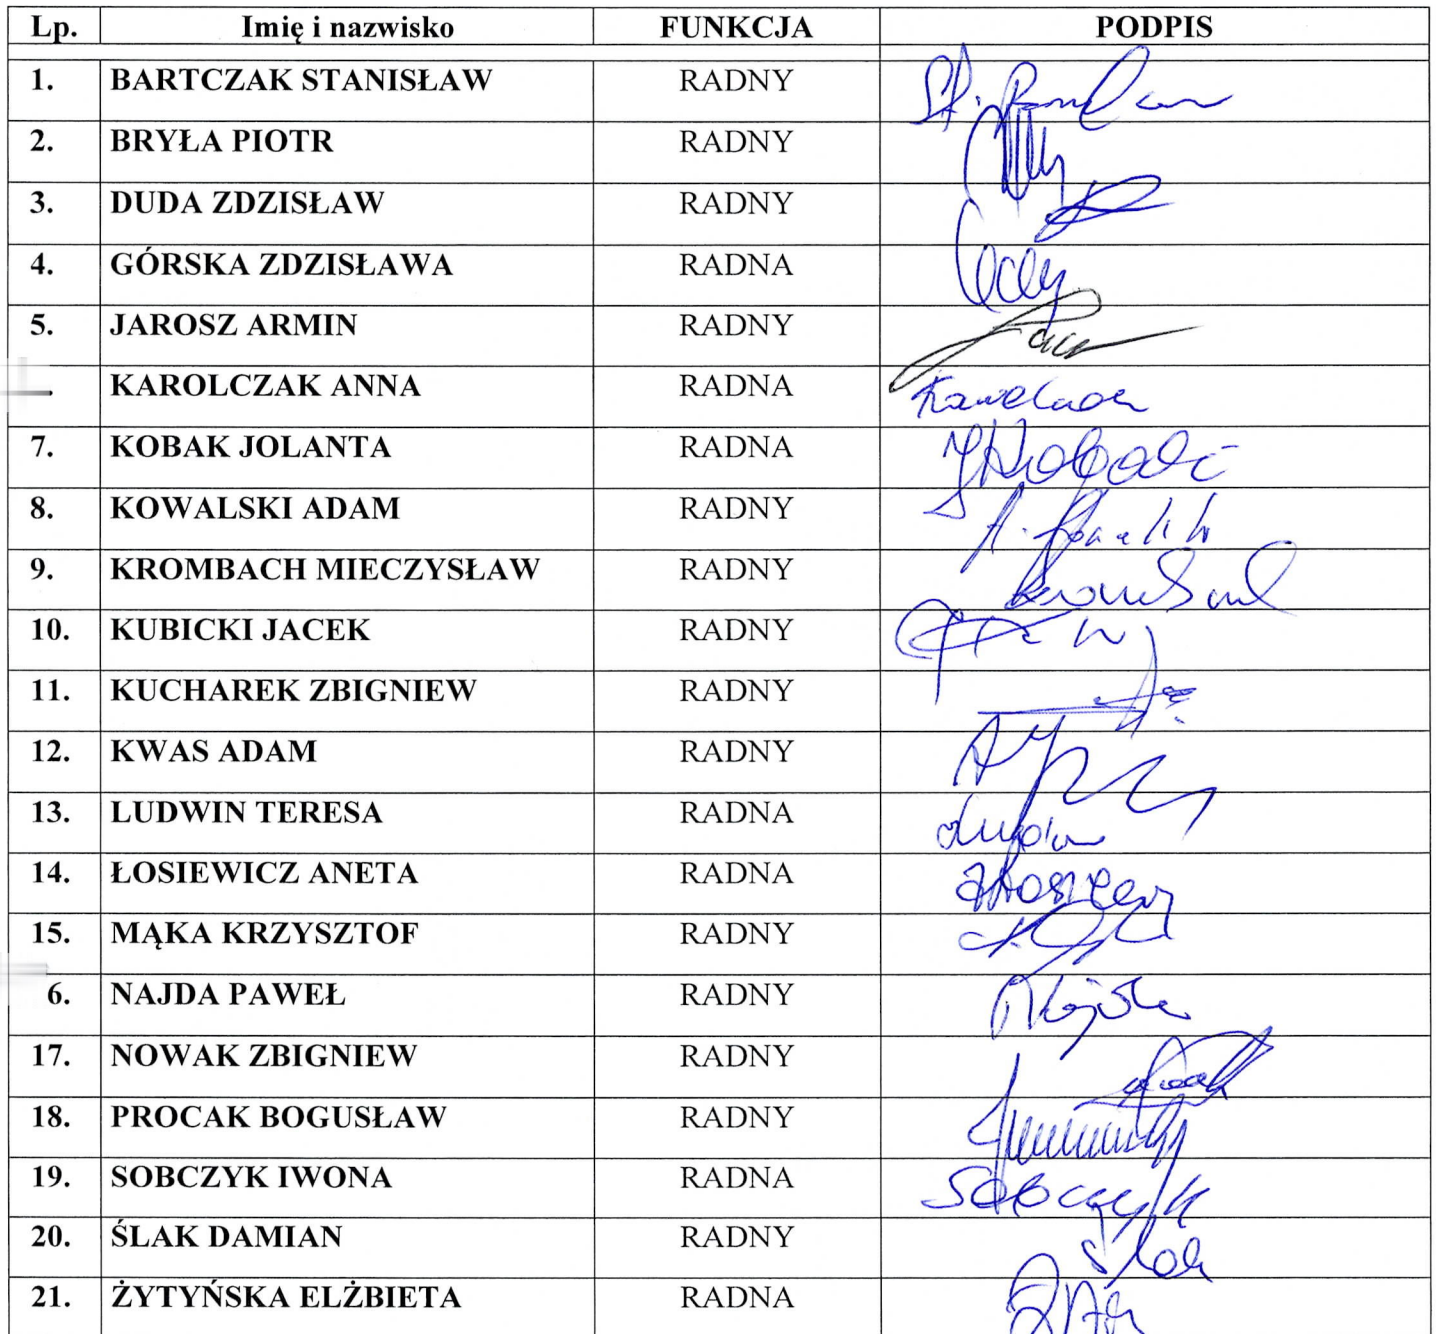 Lp. Imię i nazwisko FUNKCJA PODPIS
1. BARTCZAK STANISŁAW RADNY
2. BRYŁA PIOTR RADNY
3. DUDA ZDZISŁAW RADNY
4. GÓRSKA ZDZISŁAWA RADNA
5. JAROSZ ARMIN RADNY
. KAROLCZAK ANNA RADNA
7. KOBAK JOLANTA RADNA JKobak
8. KOWALSKI ADAM RADNY
9. KROMBACH MIECZYSŁAW RADNY
10. KUBICKI JACEK RADNY
11. KUCHAREK ZBIGNIEW RADNY
12. KWAS ADAM RADNY
13. LUDWIN TERESA RADNA
14. ŁOSIEWICZ ANETA RADNA
15. MĄKA KRZYSZTOF RADNY
6. NAJDA PAWEŁ RADNY
17. NOWAK ZBIGNIEW RADNY
18. PROCAK BOGUSŁAW RADNY
19. SOBCZYK IWONA RADNA Sobczyk
20. ŚLAK DAMIAN RADNY Ślak
21. ŻYTYŃSKA ELŻBIETA RADNA